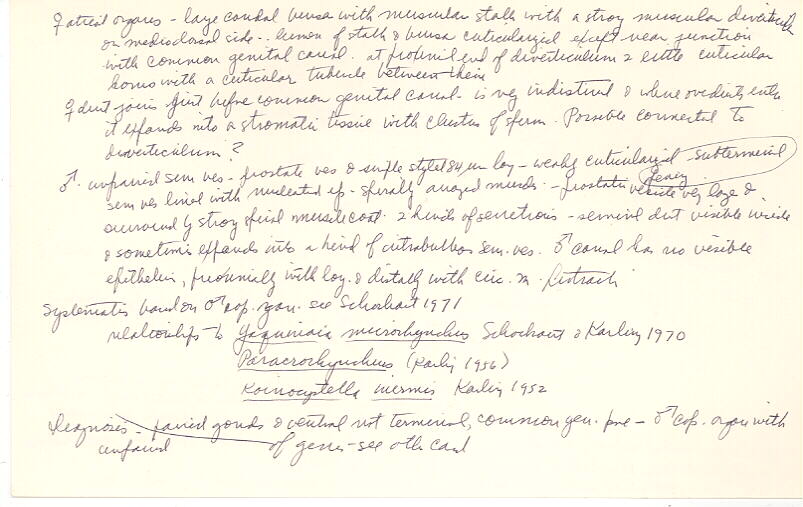 ♀ atrial organs - large caudal bursa with muscular stalk with a strong muscular diverticulum
on mediodorsal side - lumen of stalk & bursa cuticularized except near junction
with common genital canal. at proximal end of diverticulum 2 little cuticular
horns with a cuticular tubule between them
♀ duct joins just before common genital canal - is very indistinct & where oviducts enter
it expands into a stromatic tissue with clusters of sperm. Possible connected to
diverticulum?
♂. unpaired sem ves - prostate ves & simple stylet 84 µm long - weakly cuticularized - subterminal
sem ves lined with nucleated ep - spirally arranged muscles - prostatic vesicle very large &
surround by strong spiral muscle coat. 2 kinds of secretions - seminal duct visible inside
& sometimes expands into a kind of intrabulbous sem. ves. ♂ canal has no visible
epithelium, proximally with long. & distally with circ. m.
Systematics based on ♂ cop. organ. see Schockaert 1971
relationships to Yaquinaia microrhynchus Schockaert & Karling 1970
Paracrorhynchus (Karling 1956)
Koinocystella inermis Karling 1952
Diagnosis - paired gonads & ventral not terminal, common gen. pore - ♂ cop. organ with
unpaired of genus - see other card